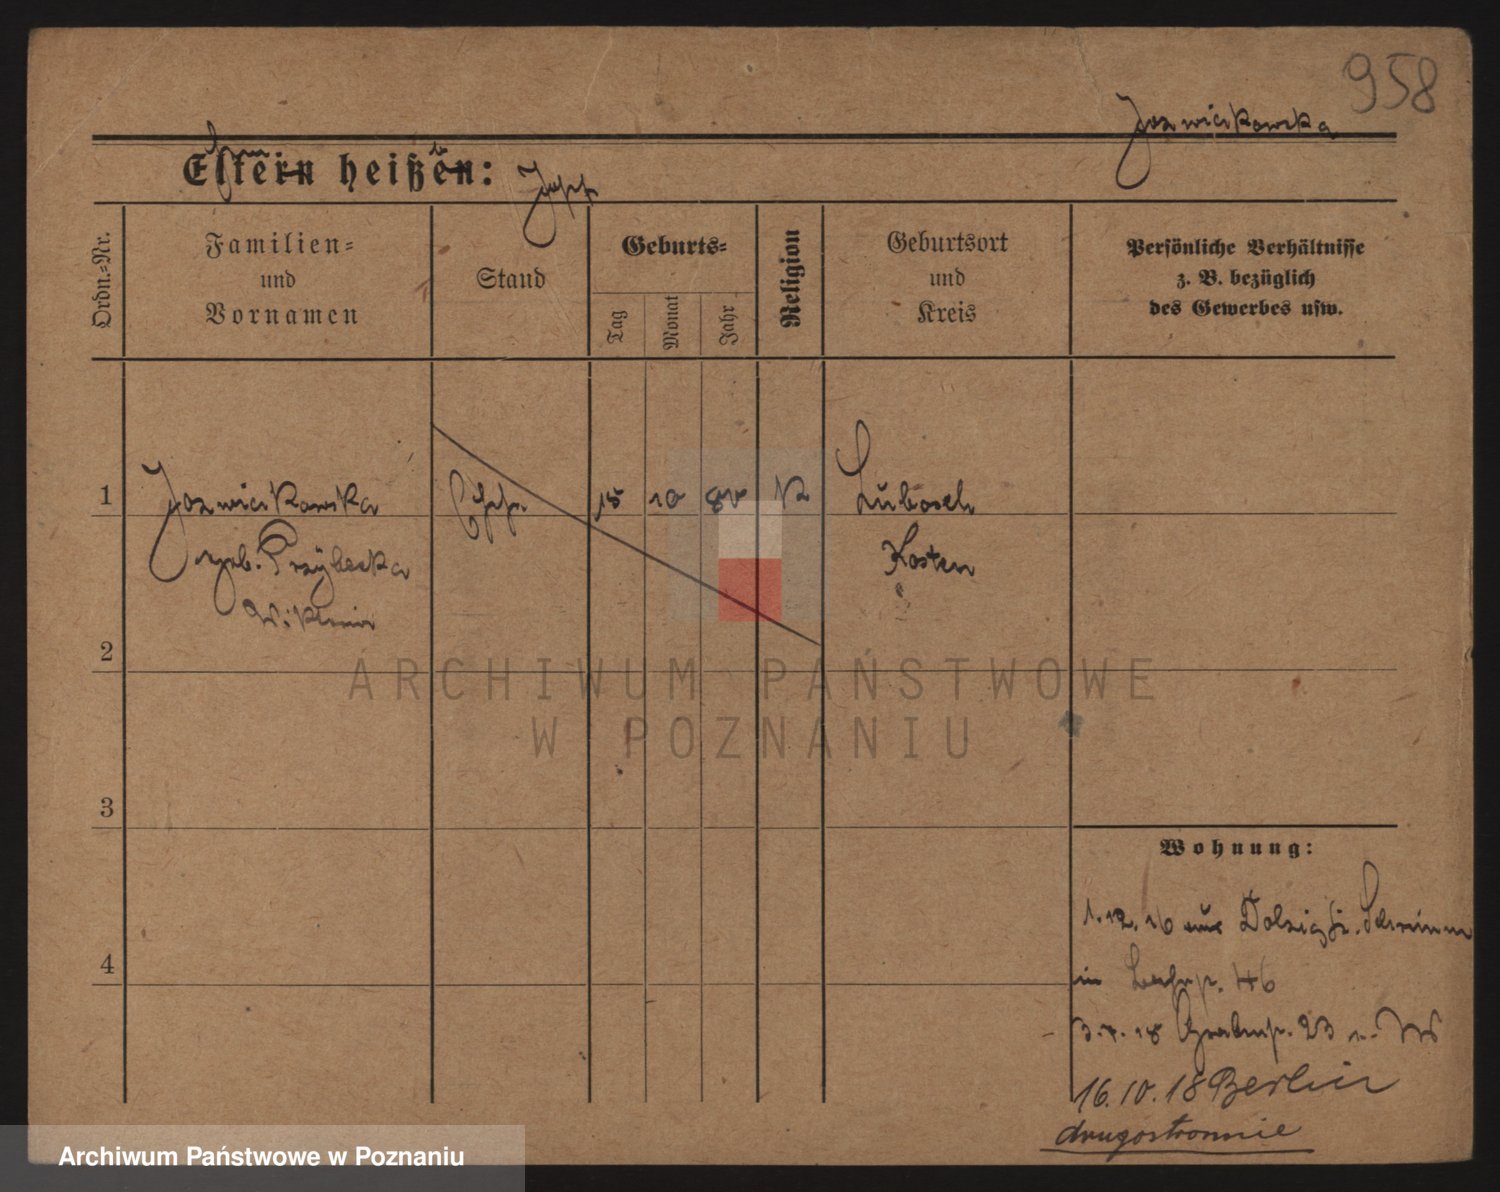 958
Jozwiakowska
Eltern heißen:
Josef
Ordn.-Nr.
Familien-
und
Vornamen
Stand
Geburts-
Tag
Monat
Jahr
Religion
Geburtsort
und
Kreis
Persönliche Verhältnisse
z. B. bezüglich
des Gewerbes usw.
1
Jozwiakowska 15 10 80 K Lubosch
geb. Przybecka Kosten
2
ARCHIWUM PAŃSTWOWE
W POZNANIU
3
Wohnung:
1.12.16 aus Dolzig Kr. Schrimm
4
in 46
3.7.18 Grabenstr. 23
16.10.18 Berlin
drugostronnie
Archiwum Państwowe w Poznaniu